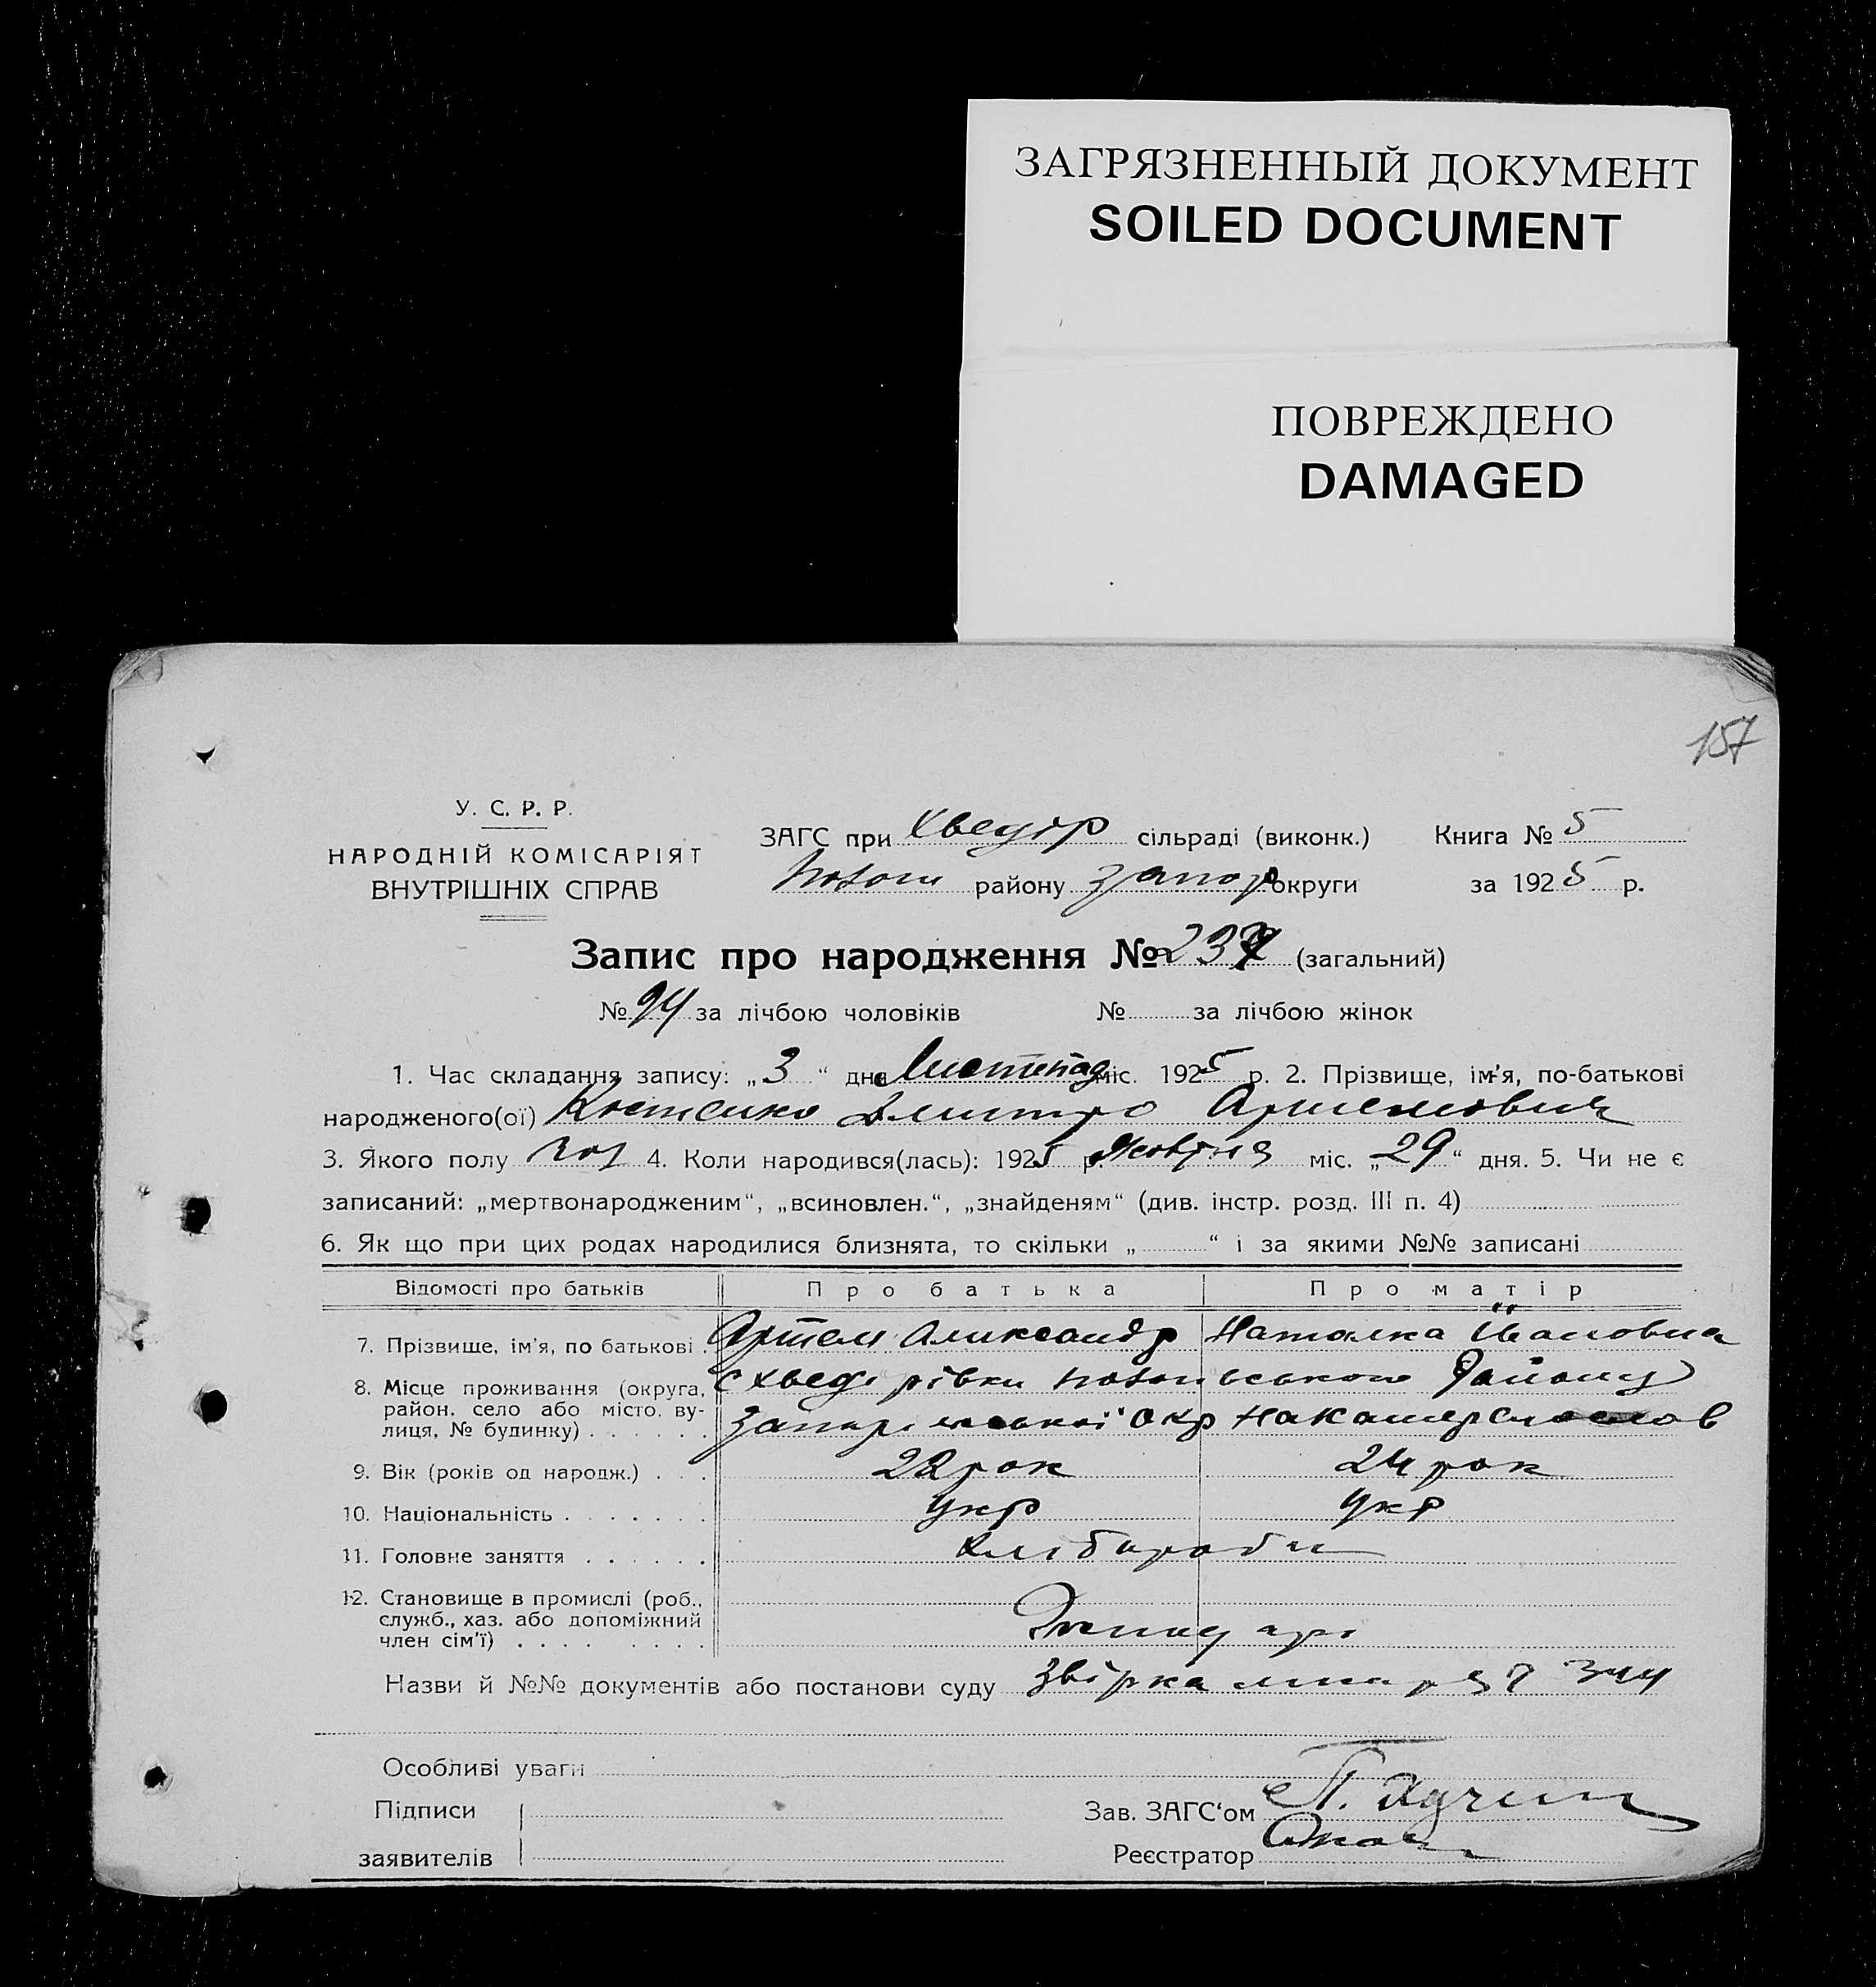 ЗАГРЯЗНЕННЫЙ ДОКУМЕНТ
SOILED DOCUMENT
ПОВРЕЖДЕНО
DAMAGED
157
У. С. Р. Р.
НАРОДНІЙ КОМІСАРІЯТ
ВНУТРІШНІХ СПРАВ
ЗАГС при Хведір сільраді (виконк.) Книга № 5
району Запор округи за 1925 р.
Запис про народження № 237 (загальний)
№ 94 за лічбою чоловіків № за лічбою жінок
1. Час складання запису: „3“ дня Листопад міс. 1925 р. 2. Прізвище, ім'я, по-батькові
народженого(ої) Костенко Дмитро Артемович
3. Якого полу чол 4. Коли народився(лась): 1925 р. Жовтня міс. „29“ дня. 5. Чи не є
записаний: „мертвонародженим“, „всиновлен.“, „знайденям“ (див. інстр. розд. III п. 4)
6. Як що при цих родах народилися близнята, то скільки „ “ і за якими №№ записані
Відомості про батьків Про батька Про матір
7. Прізвище, ім'я, по батькові . Артем Александр Наталка Івановна
8. Місце проживання (округа, с Хведорівки району
район. село або місто. вулиця, № будинку) . . . . . . окр
9. Вік (років од народж.) . . . 22 рок 24 рок
10. Національність . . . . . . . укр укр
11. Головне заняття . . . . . . Хлібороби
12. Становище в промислі (роб.,
служб., хаз. або допоміжний
член сім'ї) . . . . . . . .
Назви й №№ документів або постанови суду Звірка 344
Особливі уваги
Підписи Зав. ЗАГС‘ом
заявителів Реєстратор